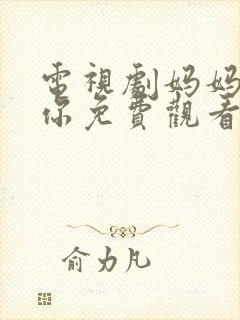 電視劇妈妈
你免費觀看
俞力凡